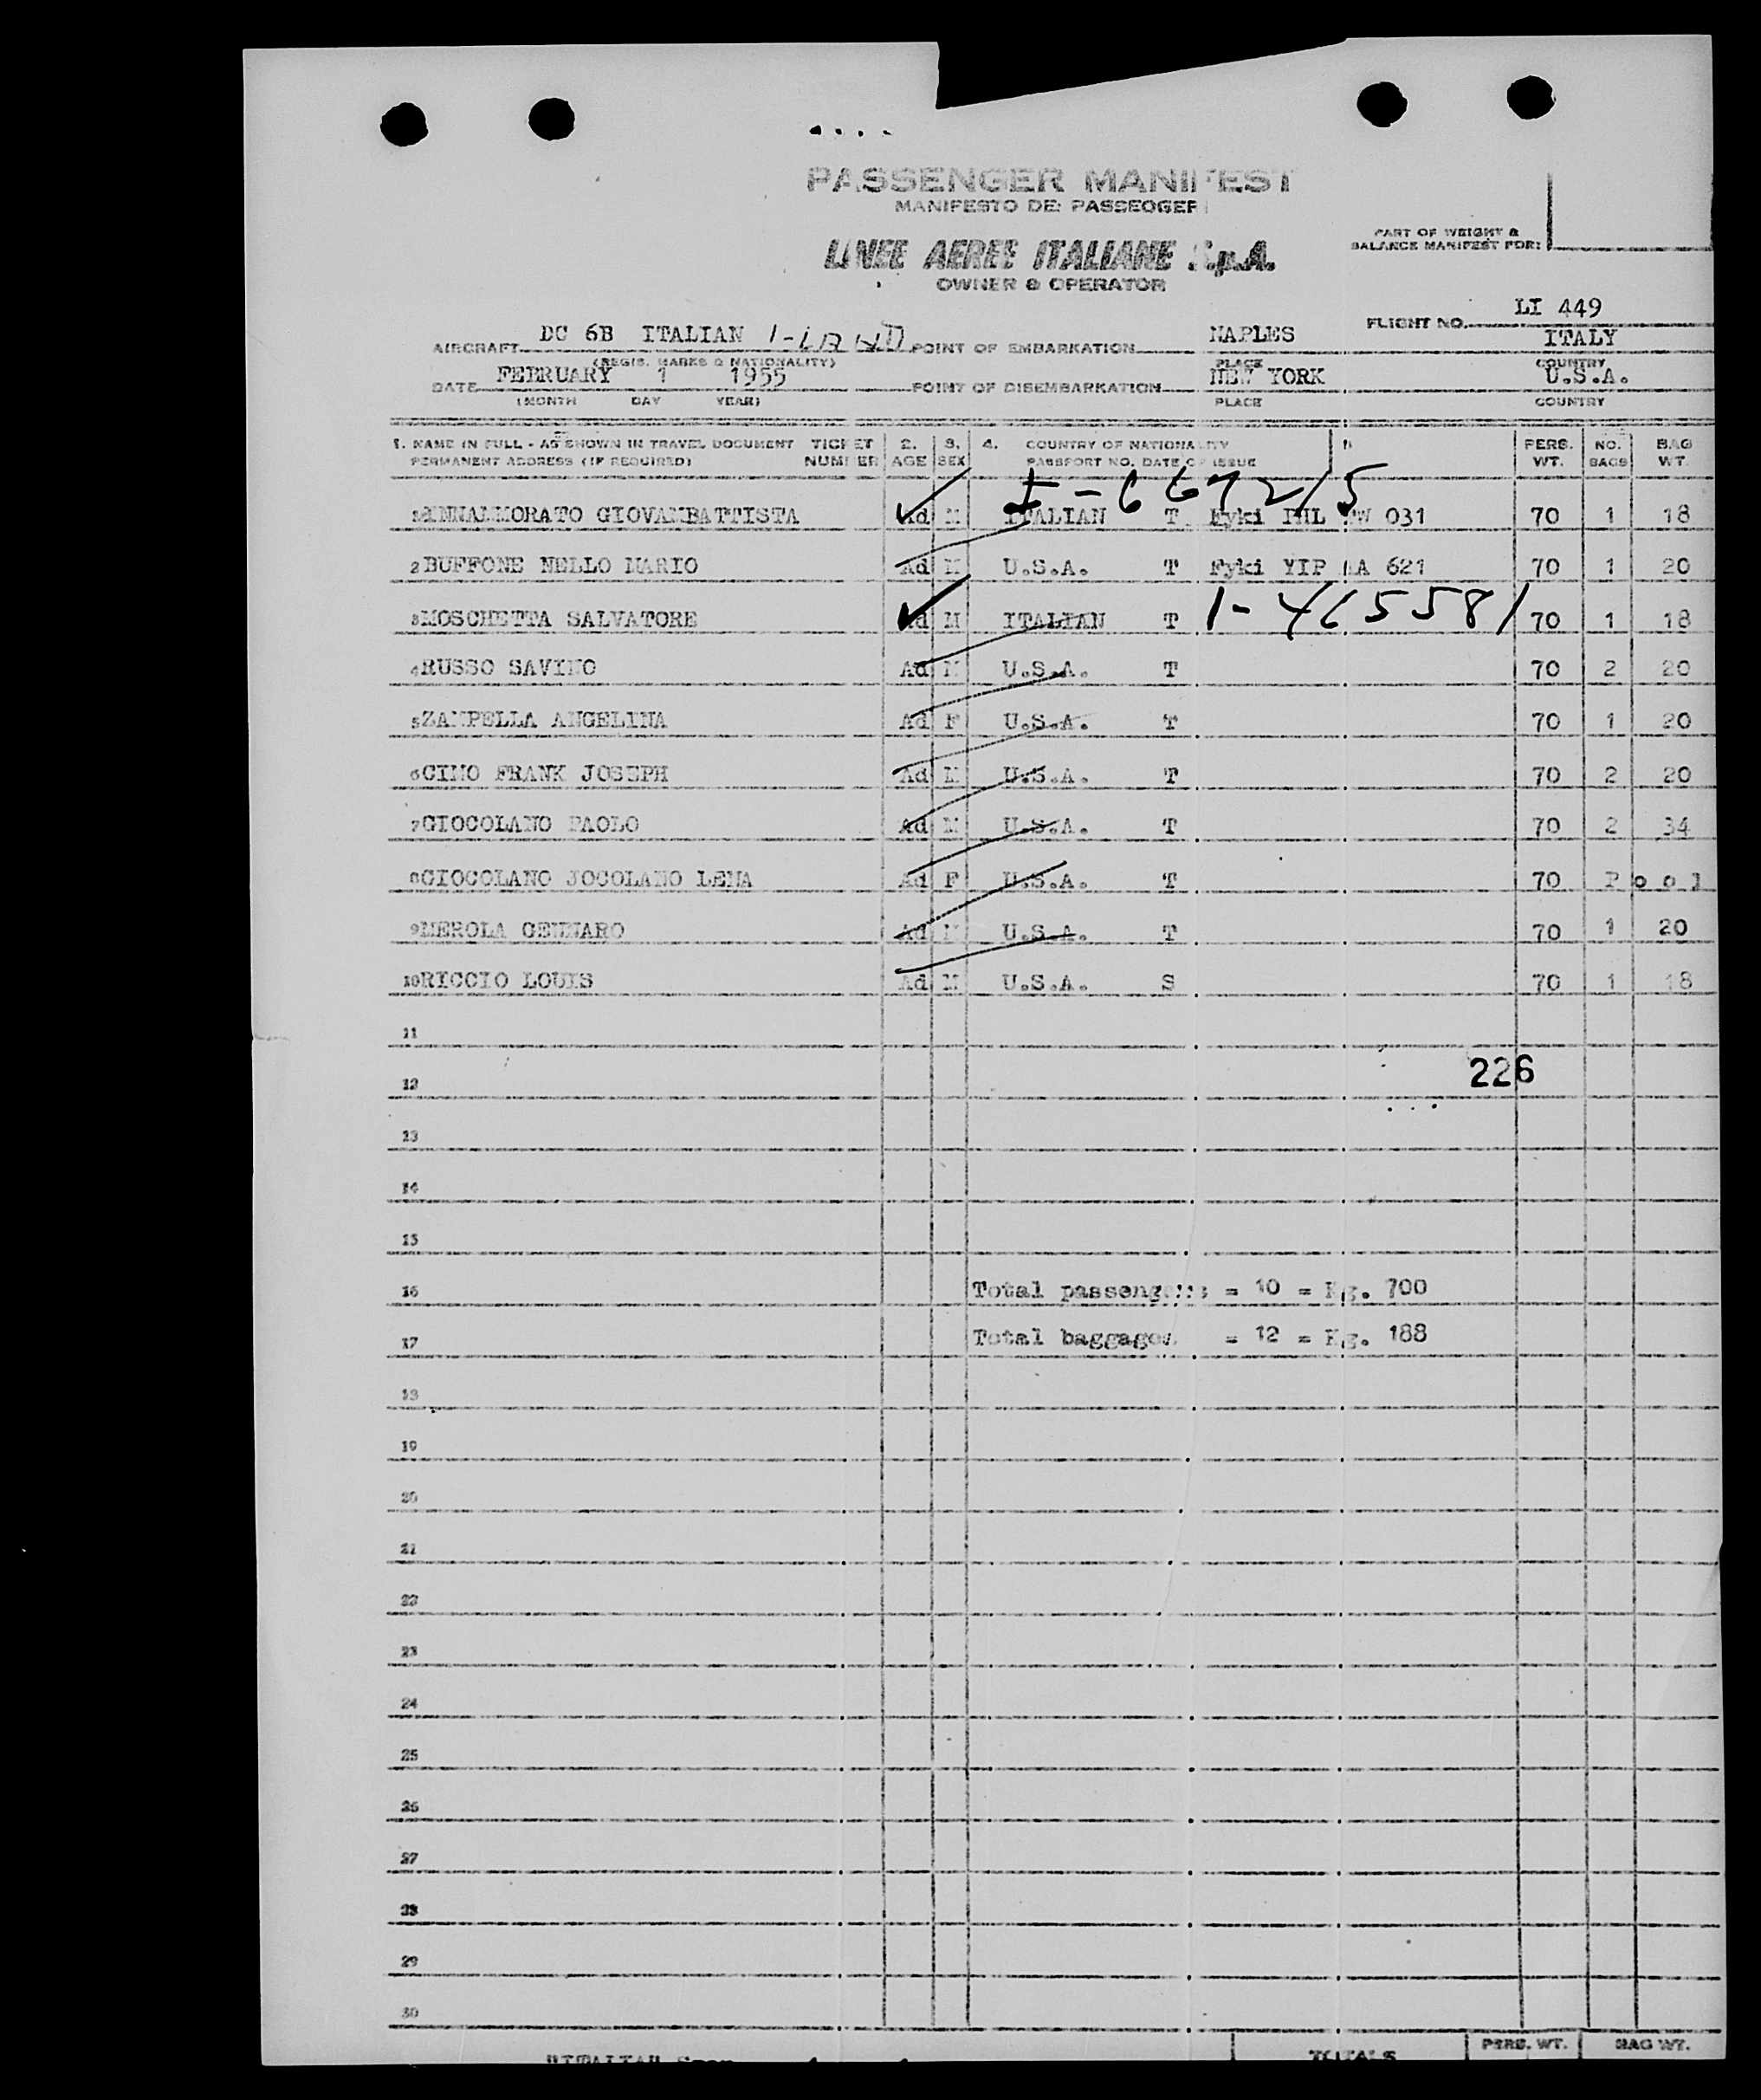 PASSENGER MANIFEST
MANIFESTO DEI PASSEGGERI
LINEE AEREE ITALIANE S.p.A.
OWNER & OPERATOR
PART OF WEIGHT &
BALANCE MANIFEST FOR:
FLIGHT NO. LI 449
AIRCRAFT DC 6B ITALIAN POINT OF EMBARKATION NAPLES ITALY
(REGIS. MARKS & NATIONALITY) PLACE COUNTRY
DATE FEBRUARY 1 1955 POINT OF DISEMBARKATION NEW YORK U.S.A.
(MONTH DAY YEAR) PLACE COUNTRY
1. NAME IN FULL - AS SHOWN IN TRAVEL DOCUMENT TICKET 2. 3. 4. COUNTRY OF NATIONALITY PERS. NO. BAG
PERMANENT ADDRESS (IF REQUIRED) NUMBER AGE SEX PASSPORT NO. DATE OF ISSUE WT. BAGS WT.
1 GIOVAMBATTISTA Ad M ITALIAN T 031 70 1 18
2 BUFFONE NELLO MARIO Ad M U.S.A. T 621 70 1 20
3 MOSCHETTA SALVATORE Ad M ITALIAN T 70 1 18
4 RUSSO SAVINO Ad M U.S.A. T 70 2 20
5 ZAMPELLA ANGELINA Ad F U.S.A. T 70 1 20
6 CIMO FRANK JOSEPH Ad M U.S.A. T 70 2 20
7 CIOCOLANO PAOLO Ad M U.S.A. T 70 2 34
8 CIOCOLANO JOCOLANO LENA Ad F U.S.A. T 70 P o o l
9 MEROLA GENNARO Ad M U.S.A. T 70 1 20
10 RICCIO LOUIS Ad M U.S.A. S 70 1 18
11
226
12
13
14
15
16 Total passengers = 10 = Kg. 700
17 Total baggages = 12 = Kg. 188
18
19
20
21
22
23
24
25
26
27
28
29
30
TOTALS PERS. WT. BAG WT.